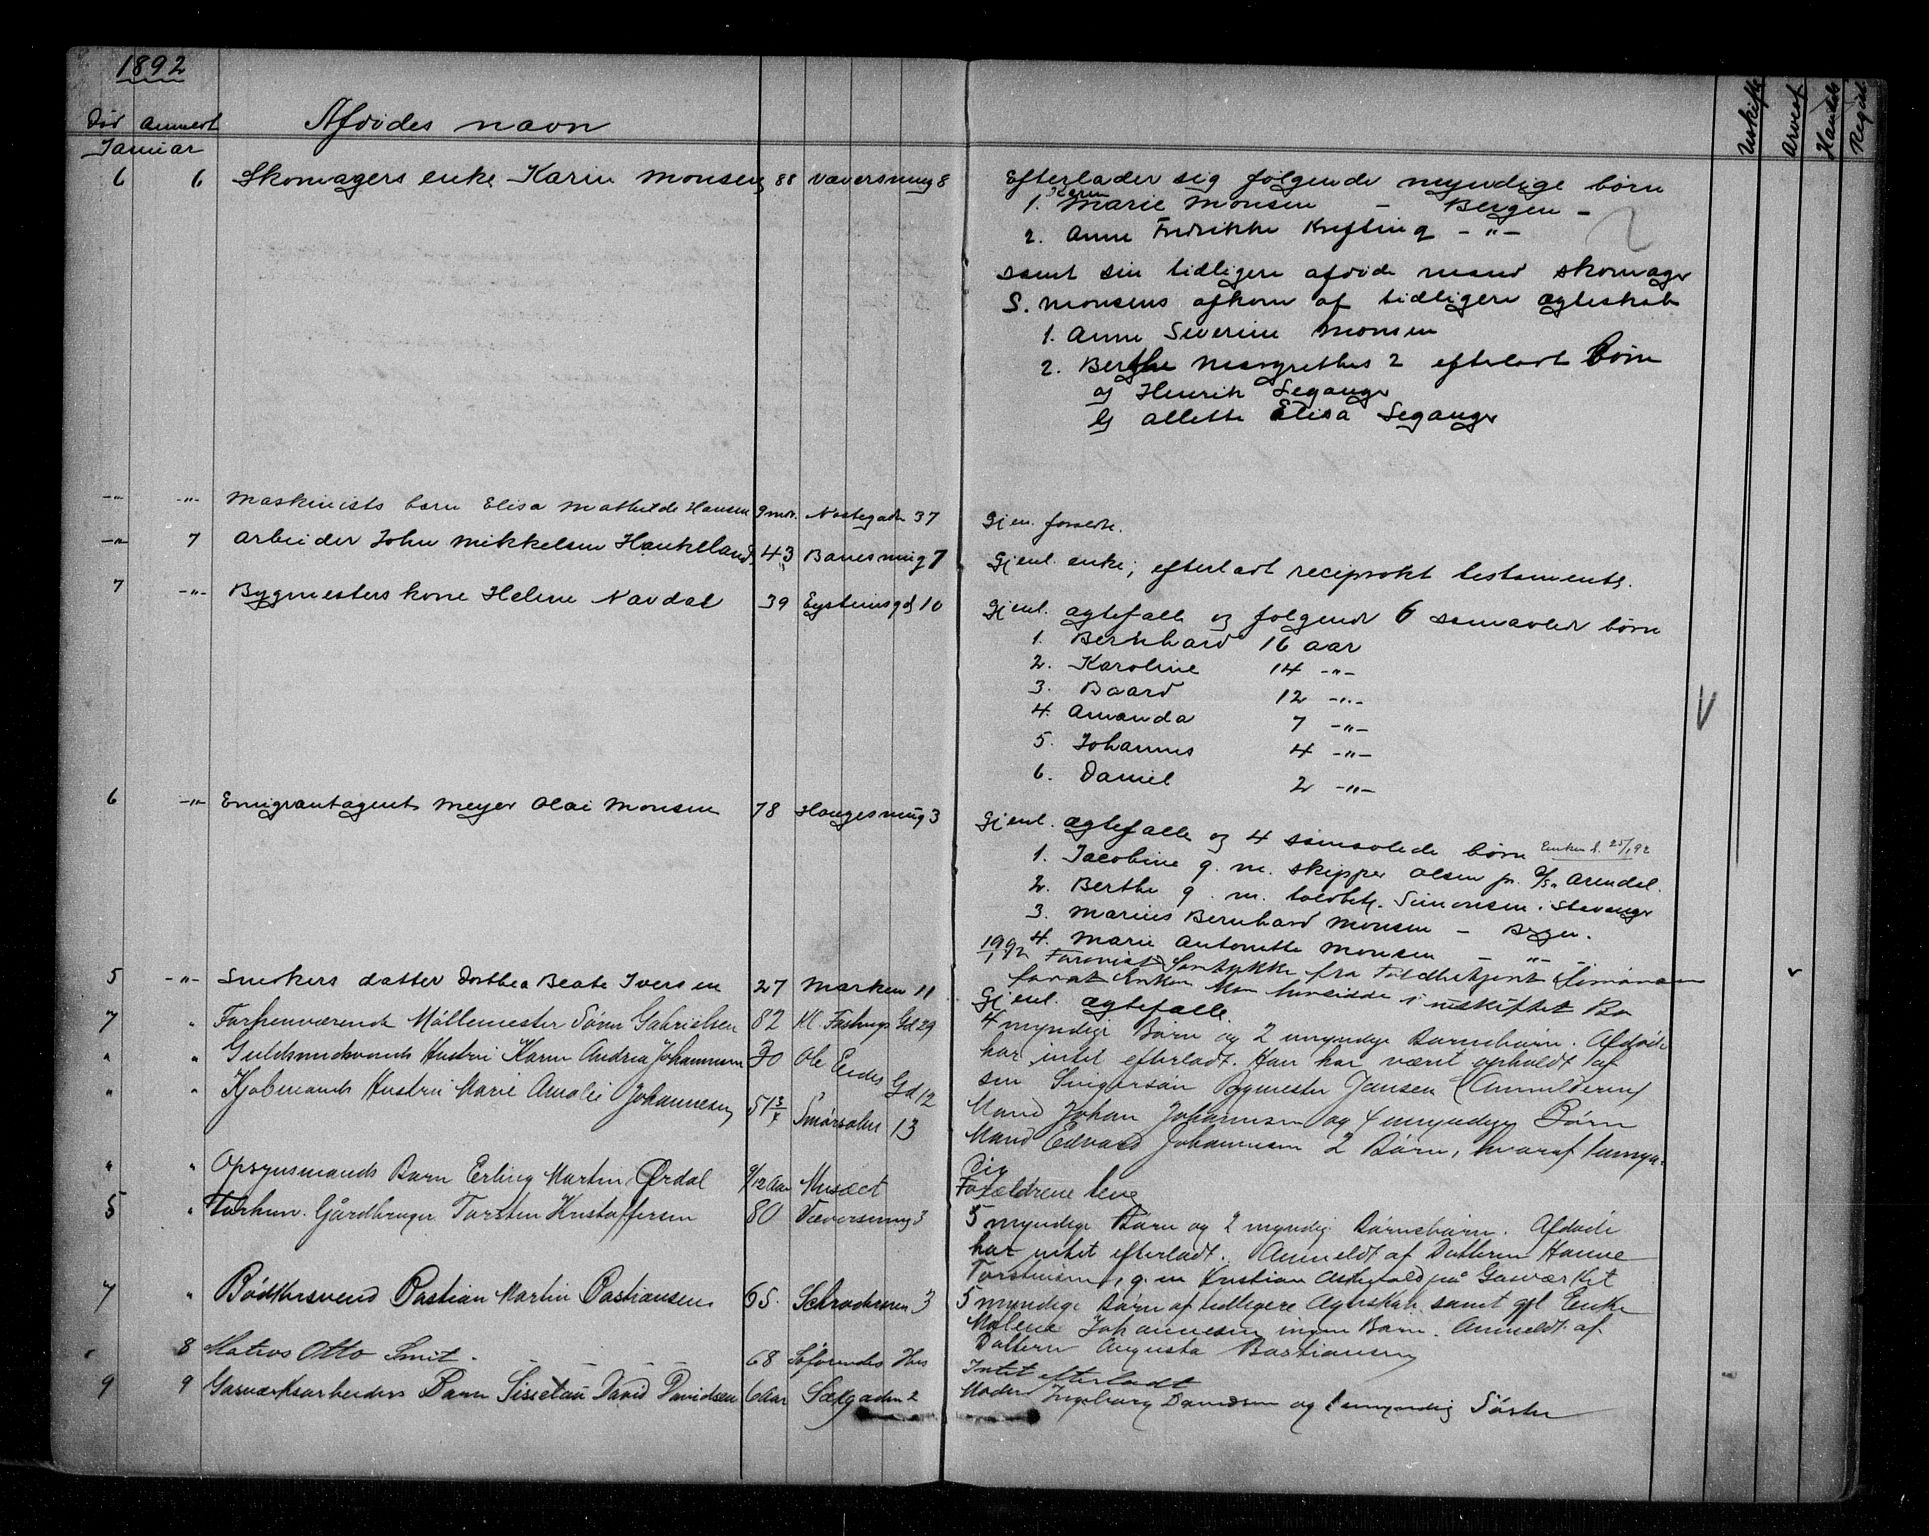 1892
Død Anmeldt Afdødes navn Uskifte Arveaf Handels Regist
Januar
6 6 Skomagers enke Karin Monsen 88 Væversmug 8 Efterlader sig følgende myndige børn
1. Karen Marie Monsen - Bergen -
2. Anne Fredrikke Krefting - " -
samt sin tidligere afdøde mand skomager
S. Monsens afkom af tidligere ægteskab
1. Anne Severine Monsen
2. Berthe Margrethes 2 efterladt børn
a) Henrik Leganger
b) Allette Elisa Leganger
-"- -"- Maskinists barn Elisa Mathilde Hansen 9 mdr. Nøstegadn 37 Gjen. forældre.
-"- 7 Arbeider John Mikkelsen Haukeland 43 Banesmug 7 Gjenl. enke; efterladt reciprokt testamente.
7 -"- Bygmesters kone Helene Navdal 39 Eysteinsgd 10 Gjenl. ægtefælle og følgende 6 samavlede børn
1. Bernhard 16 aar
2. Karoline 14 -"-
3. Baard 12 -"-
4. Amanda 7 -"-
5. Johannes 4 -"-
6. Daniel 2 -"-
6 -"- Emigrantagent Meyer Olai Monsen 78 Haugesmug 3 Gjenl. ægtefælle og 4 samavlede børn Enken d. 25/1 92
1. Jacobine g. m. skipper Olsen pr. Arendal.
2. Berthe g. m. toldbetj. Simonsen. Stavanger
3. Marius Bernhard Monsen - Bergen.
4. Marie Antonette Monsen - " -
19/1 92 Samtykke fra Toldbetjent Simonsen
forat Enken kan hensidde i uskiftet Bo
5 -"- Snekers datter Dorthea Beate Iversen 27 Marken 11 Gjenl. ægtefælle.
7 " Forhenværende Møllemester Sønn Gabrielsen 82 Kl. Fastings Gd 29 4 myndige Børn og 2 umyndge Barnebørn. Afdøde
har intet efterladt. Han har været opholdt af
sin Svigersøn Bygmester Jansen (Anmelderen)
" " Guldsmedsvends Hustru Karen Andrea Johannesen 70 Ole Irdes Gd 12 Mand Johan Johannesen og 4 umyndige Børn
" " Kjøbmands Hustru Marie Amalie Johannesen 51 Smørsalm. 13 Mand Edvard Johannesen 2 Børn, hvoraf 1 umyn-
dig
" " Opsynsmands Barn Erling Martin Ørdal 9/12 Aar Museet Forældrene leve
5 " Forhenv. Gårdbruger Torsten Kristoffersen 80 Væversmug 3 5 myndige Børn og 2 myndig Børnebørn. Afdøde
har intet efterladt. Anmeldt af Datteren Hanne
Torstensen, g. m. Kristian Askevold på Gasværket
7 " Bødkersvend Bastian Martin Bastiansen 65. 3 5 myndige Børn af tidligere Ægteskab samt gjl Enke
Malene Johannesen ingen Barn. Anmeldt af
Datteren Augusta Bastiansen
" 8 Matros Otto Smit - 68 Søfarendes Hus Intet efterladt
9 9 Gasværksarbeiders Barn David Davidsen 6 Aar Sælgaden 2 Moder Ingeborg Davidsen og 1 umyndig Søster